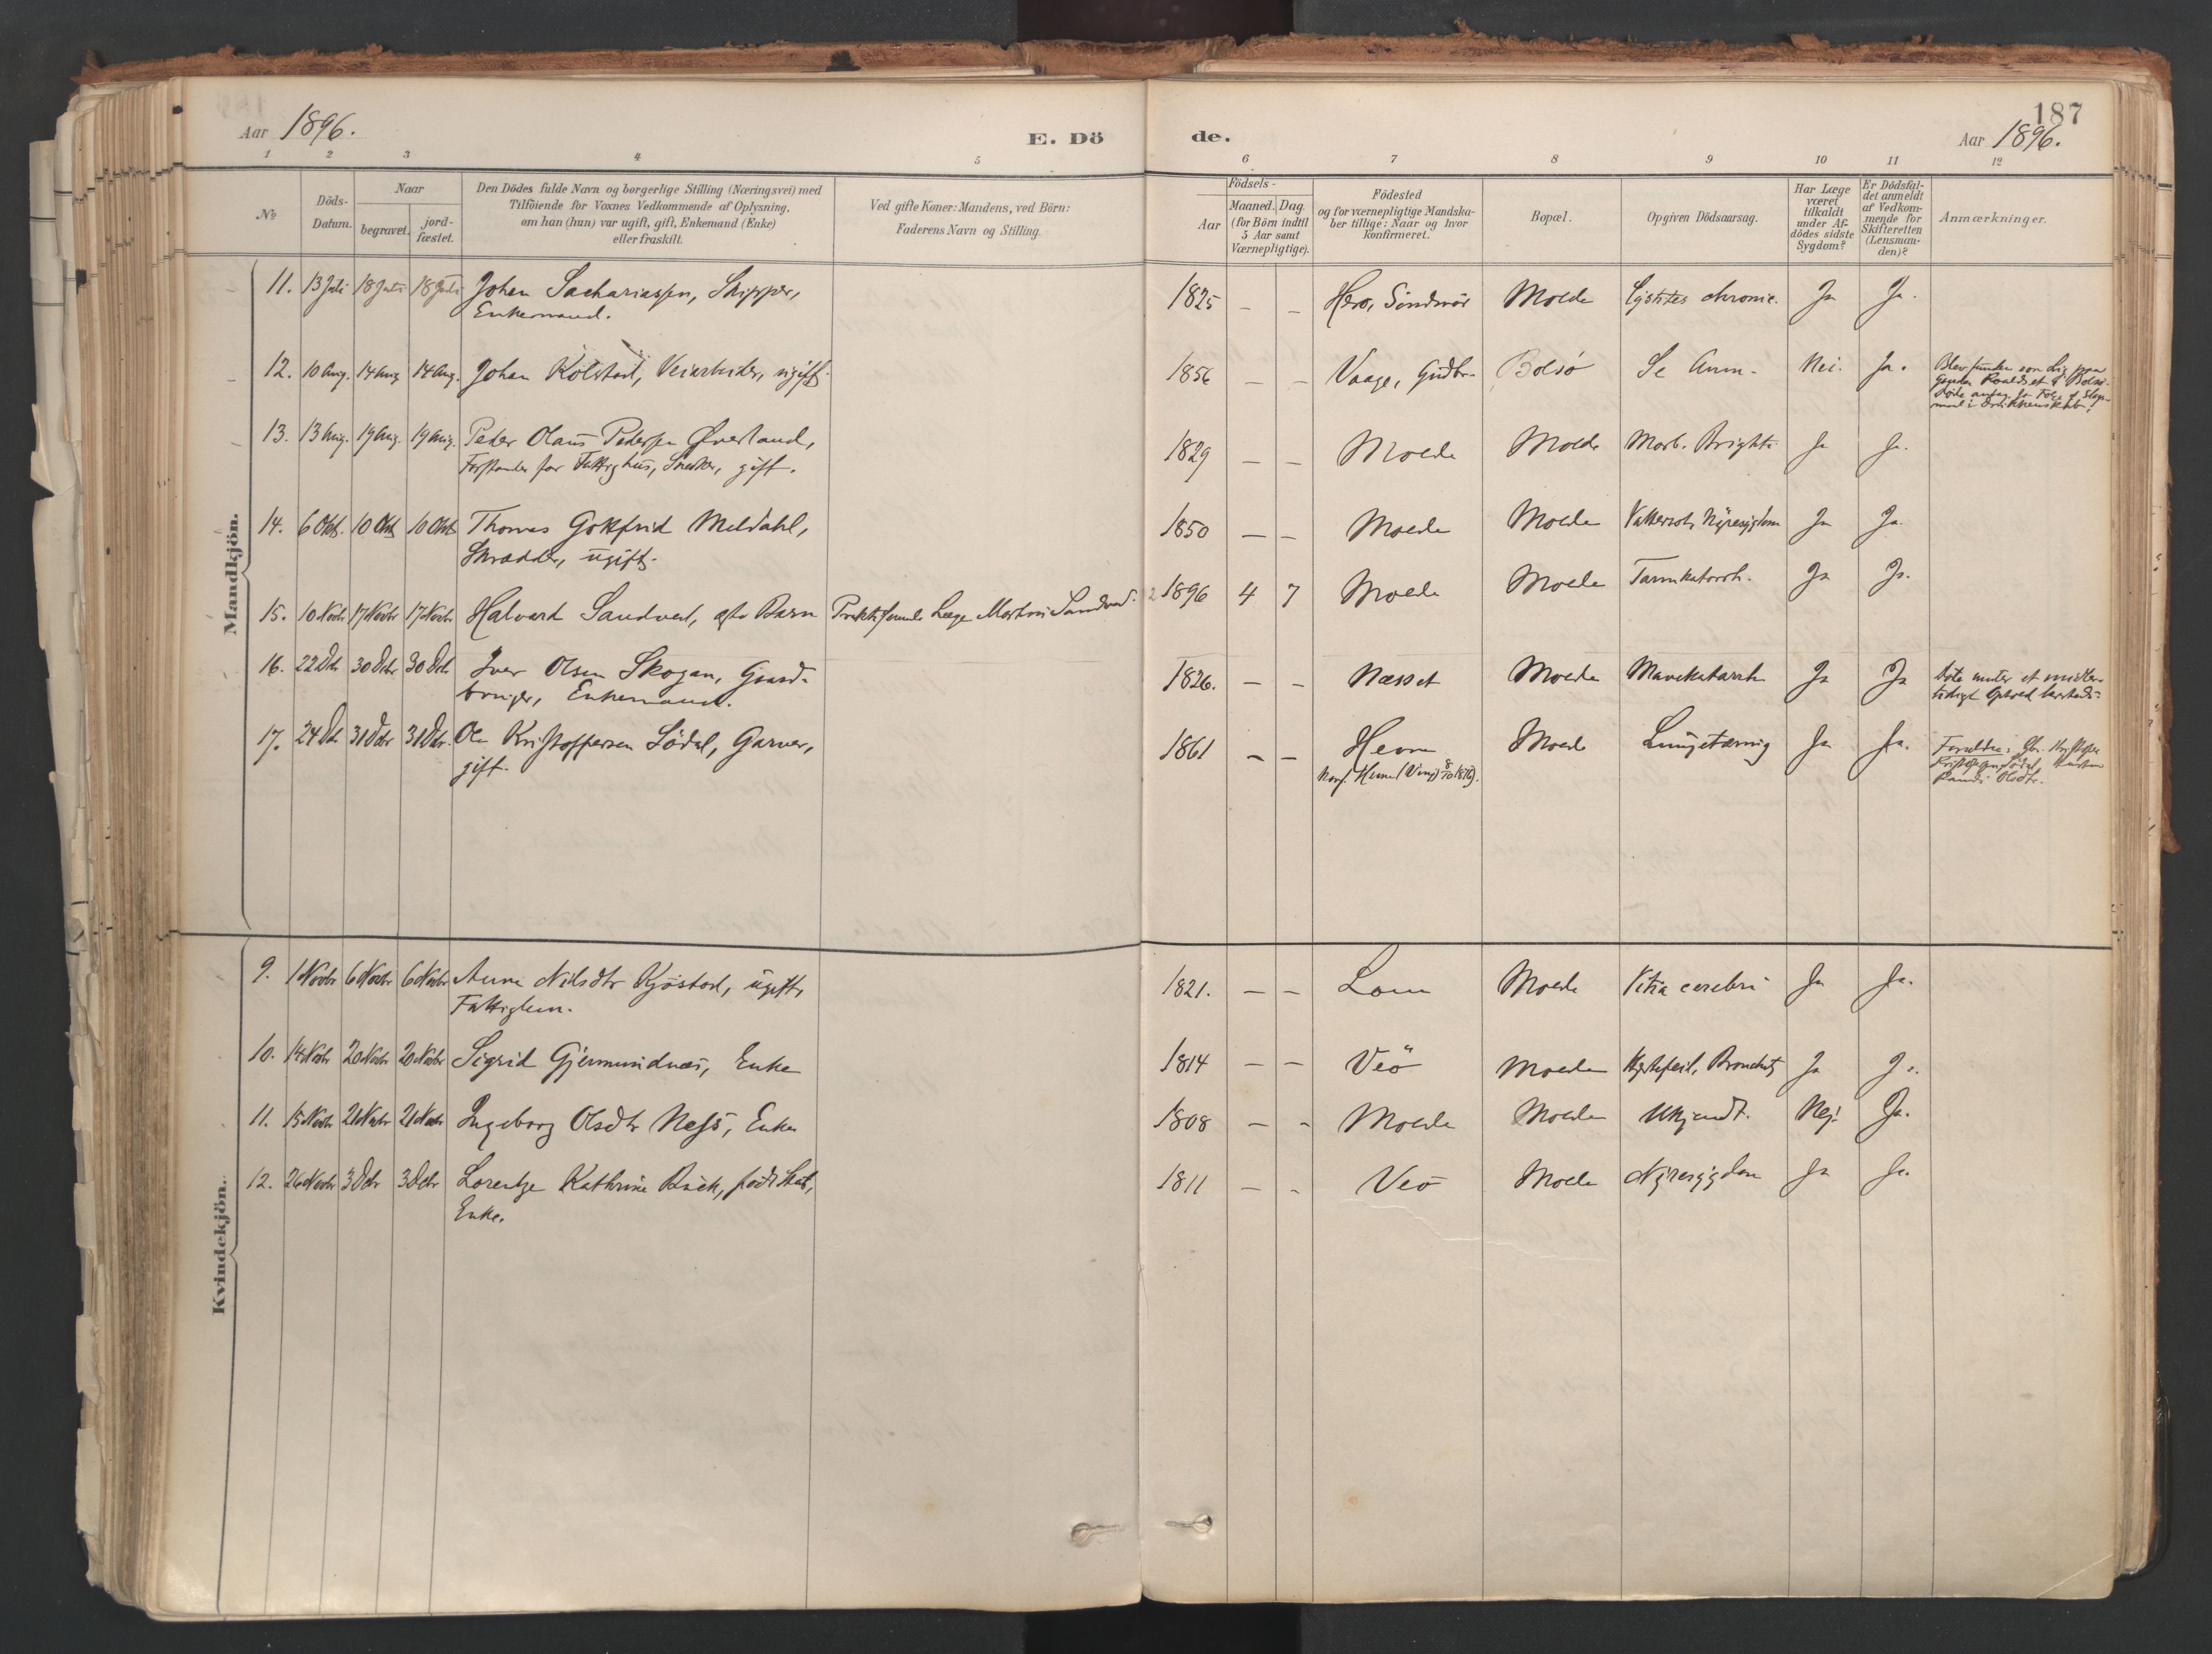 187
Aar 1896.
E. Dö
de.
Aar 1896.
1 2 3 4 5 6 7 8 9 10 11 12
No
Döds-
Datum.
Naar
begravet.
jord-
fæstet.
Den Dödes fulde Navn og borgerlige Stilling (Næringsvei) med
Tilföiende for Voxnes Vedkommende af Oplysning,
om han (hun) var ugift, gift, Enkemand (Enke)
eller fraskilt.
Ved gifte Koner: Mandens, ved Börn:
Faderens Navn og Stilling.
Födsels-
Aar
Maaned. Dag
(for Börn indtil
5 Aar samt
Værnepligtige).
Födested
og for værnepligtige Mandska-
ber tillige: Naar og hvor
konfirmeret.
Bopæl.
Opgiven Dödsaarsag.
Har Læge
været
tilkaldt
under Af-
dödes sidste
Sygdom?
Er Dödsfal-
det anmeldt
af Vedkom-
mende for
Skifteretten
(Lensman-
den)?
Anmærkninger.
Mandkjön.
11. 13 Juli 18 Juli 18 Juli Johan Sachariassen, Skipper, 1825 — — Herö, Söndmör Molde Cystites chronic. Ja Ja.
Enkemand.
12. 10 Aug. 14 Aug. 14 Aug. Johan Kolstad, Veiarbeider, ugift. 1856 — — Vaage, Gudbr. Bolsö Se Anm. Nei. Ja. Blev funden som Lig paa
Gaarden Roaldset i Bolsö.
13. 13 Aug. 19 Aug. 19 Aug. Peder Olaus Pedersen Överland, 1829 — — Molde Molde Morb. Brightii Ja Ja.
Forstander for Fattighus, Snedker, gift.
14. 6 Okt. 10 Okt. 10 Okt. Thomas Gottfried Meldahl, 1850 — — Molde Molde Vattersot, Nyresygdom Ja Ja.
Skrædder, ugift.
15. 10 Novbr 17 Novbr 17 Novbr Halvard Sandved, ægte Barn Praktiserende Læge Morten Sandved. 1896 4 7 Molde Molde Tarmkatarrh. Ja Ja.
16. 22 Dcbr 30 Dcbr 30 Dcbr Iver Olsen Skogan, Gaard- 1826. — — Næsset Molde Mavekatarrh Ja Ja Döde under et midler-
bruger, Enkemand. tidigt Ophold hersteds.
17. 24 Dcbr 31 Dcbr 31 Dcbr. Ole Kristoffersen Södal, Garver, 1861 — — Hevne Molde Lungetæring Ja Ja. Forældre:
gift.
Kvindekjön.
9. 1 Novbr 6 Novbr 6 Novbr Anne Nilsdtr Kjöstad, ugift, 1821. — — Lom Molde Vitia cerebri Ja Ja.
Fattiglem.
10. 14 Novbr 20 Novbr 20 Novbr Sigrid Gjermundnæs, Enke 1814 — — Veö Molde Hjertefeil, Bronchit. Ja Ja.
11. 15 Novbr 21 Novbr 21 Novbr Ingeborg Olsdtr Ness, Enke 1808 — — Molde Molde Ukjendt. Nej. Ja.
12. 26 Novbr 3 Dcbr 3 Dcbr Lorentze Kathrine Bäck, född 1811 — — Veö Molde Nyresygdom Ja Ja.
Enke.